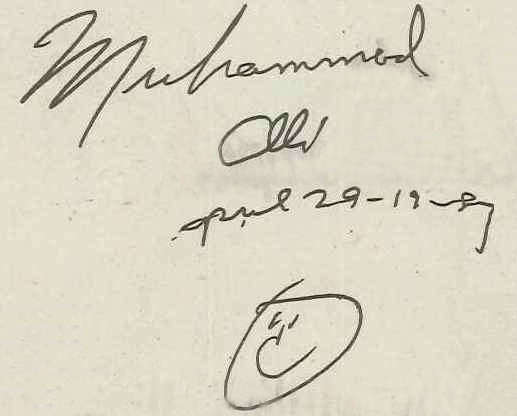 Muhammad
Ali
april 29-19-87